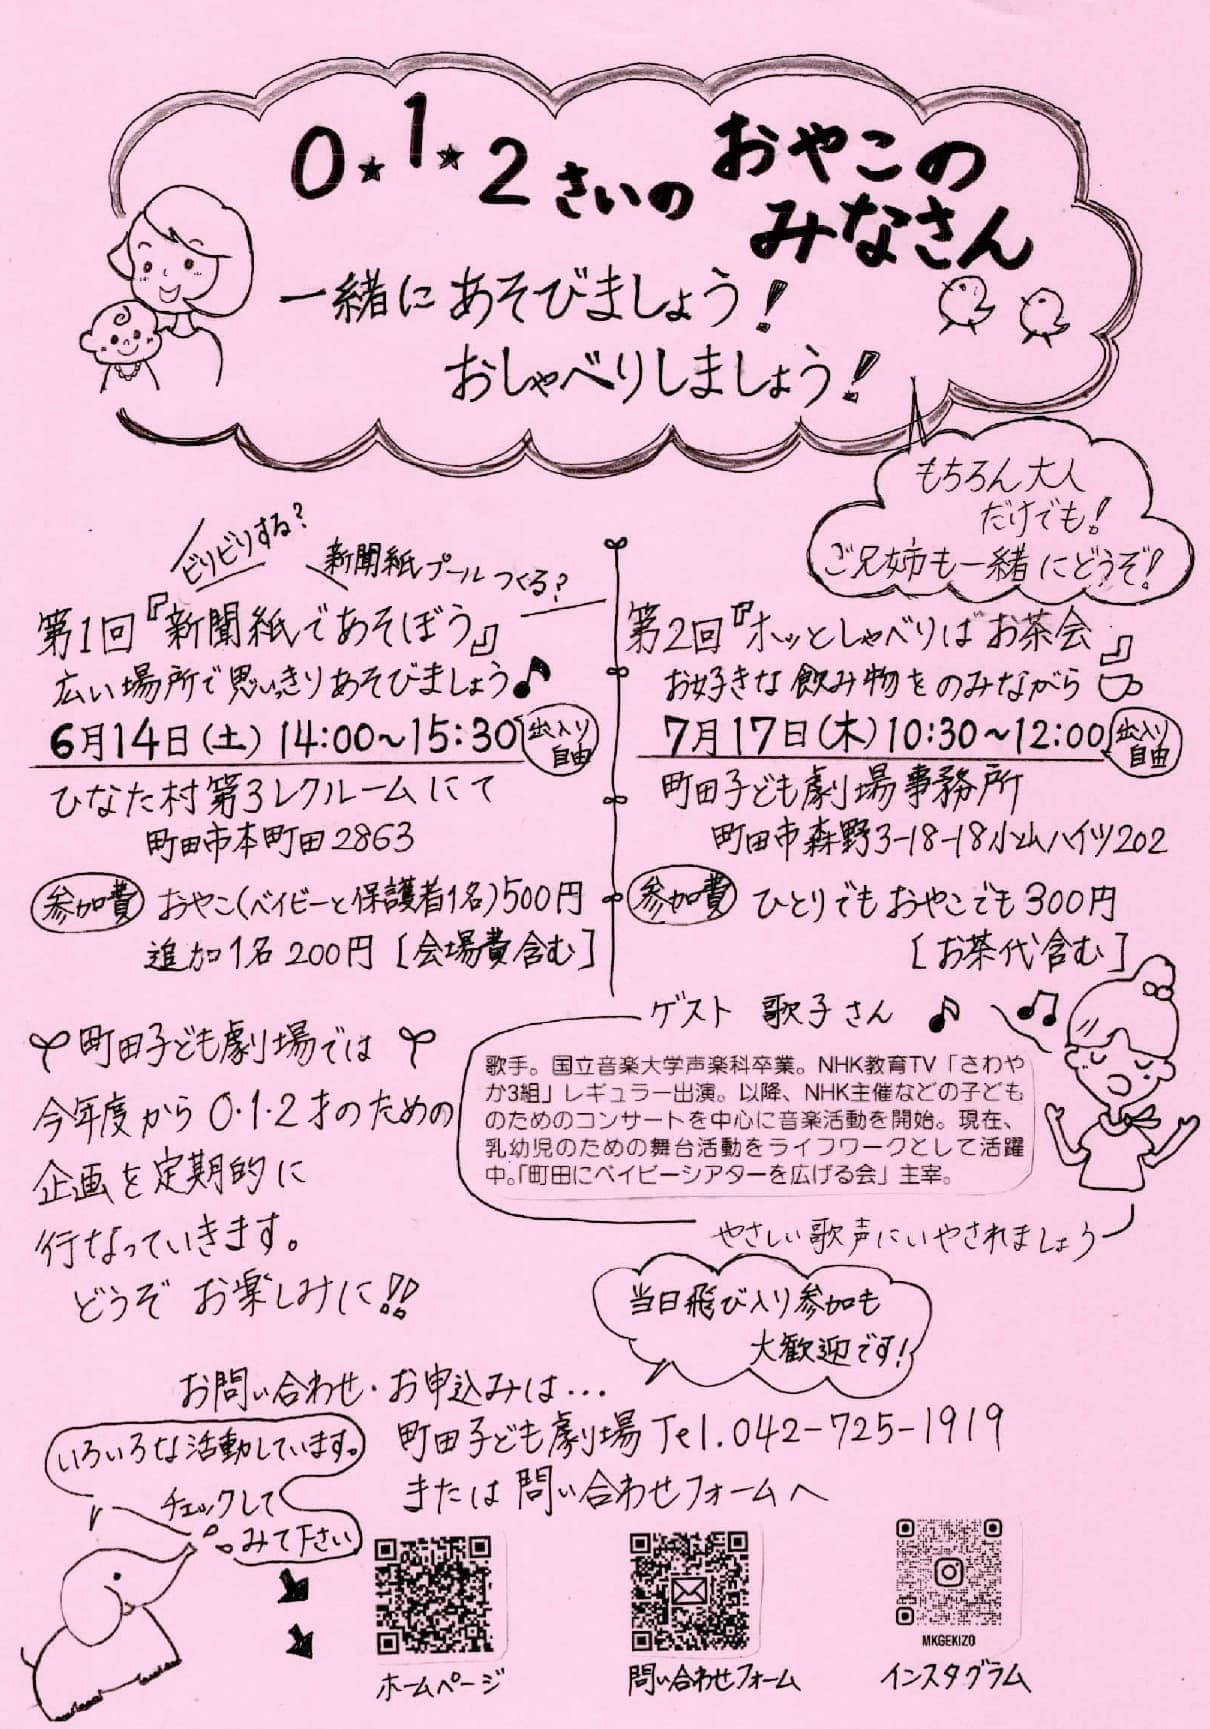 0★1★2さいの おやこの
みなさん
一緒にあそびましょう!
おしゃべりしましょう!
もちろん大人
だけでも!
ご兄姉も一緒にどうぞ!
ビリビリする?
新聞紙プールつくる?
第1回『新聞紙であそぼう』
広い場所で思いっきりあそびましょう♪
6月14日(土) 14:00~15:30
出入り
自由
ひなた村第3レクルームにて
町田市本町田2863
参加費 おやこ(ベイビーと保護者1名)500円
追加1名200円[会場費含む]
第2回『ホッとしゃべりば お茶会』
お好きな飲み物をのみながら
7月17日(木)10:30~12:00
出入り
自由
町田子ども劇場事務所
町田市森野3-18-18小山ハイツ202
参加費 ひとりでもおやこでも300円
[お茶代含む]
ゲスト 歌子さん ♪ ♫
歌手。国立音楽大学声楽科卒業。NHK教育TV「さわや
か3組」レギュラー出演。以降、NHK主催などの子ども
のためのコンサートを中心に音楽活動を開始。現在、
乳幼児のための舞台活動をライフワークとして活躍
中。「町田にベイビーシアターを広げる会」主宰。
やさしい歌声にいやされましょう
町田子ども劇場では
今年度から0・1・2才のための
企画を定期的に
行なっていきます。
どうぞお楽しみに!!
当日飛び入り参加も
大歓迎です!
お問い合わせ・お申込みは…
町田子ども劇場 Tel.042-725-1919
または問い合わせフォームへ
いろいろな活動しています。
チェックして
みて下さい
ホームページ
問い合わせフォーム
MKGEKIZO
インスタグラム